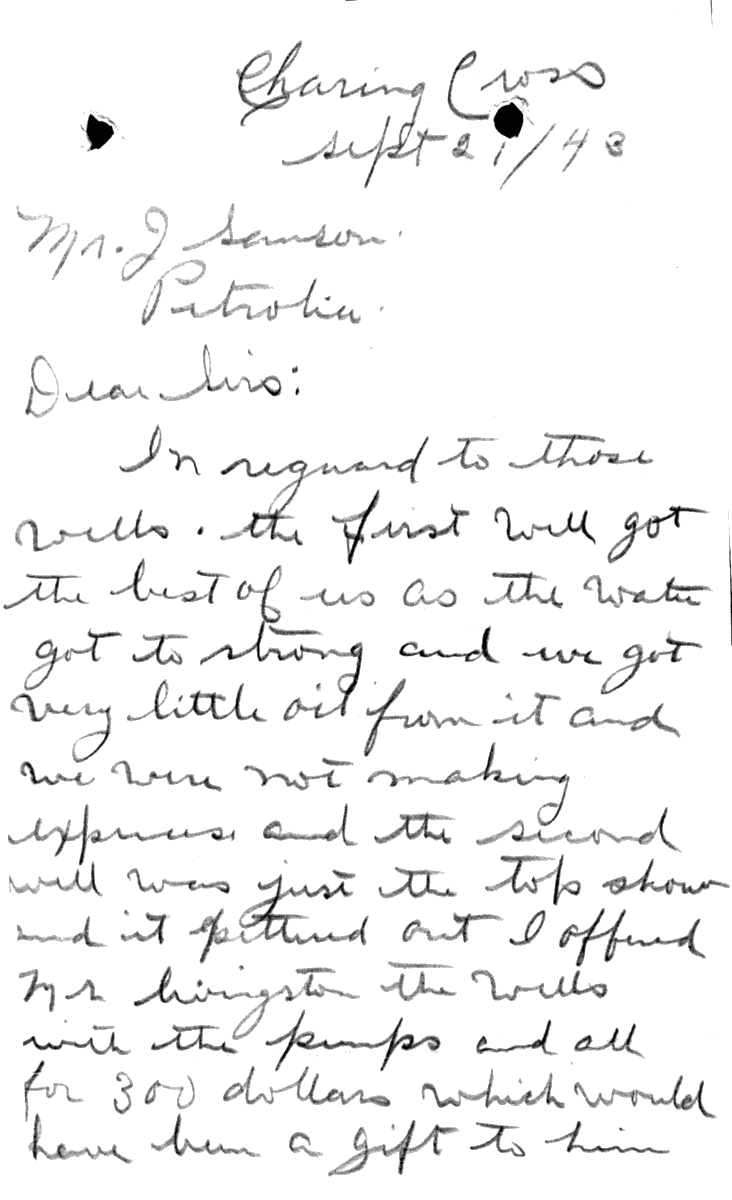 Charing Cross
Sept 21/43
Mr. J Samson.
Petrolia.
Dear Sirs:
In reguard to those
wells. the first well got
the best of us as the water
got to strong and we got
very little oil from it and
we were not making
expenses and the second
well was just the top show
and it pettered out I offered
Mr Livingston the wells
with the pumps and all
for 300 dollars which would
have been a gift to him